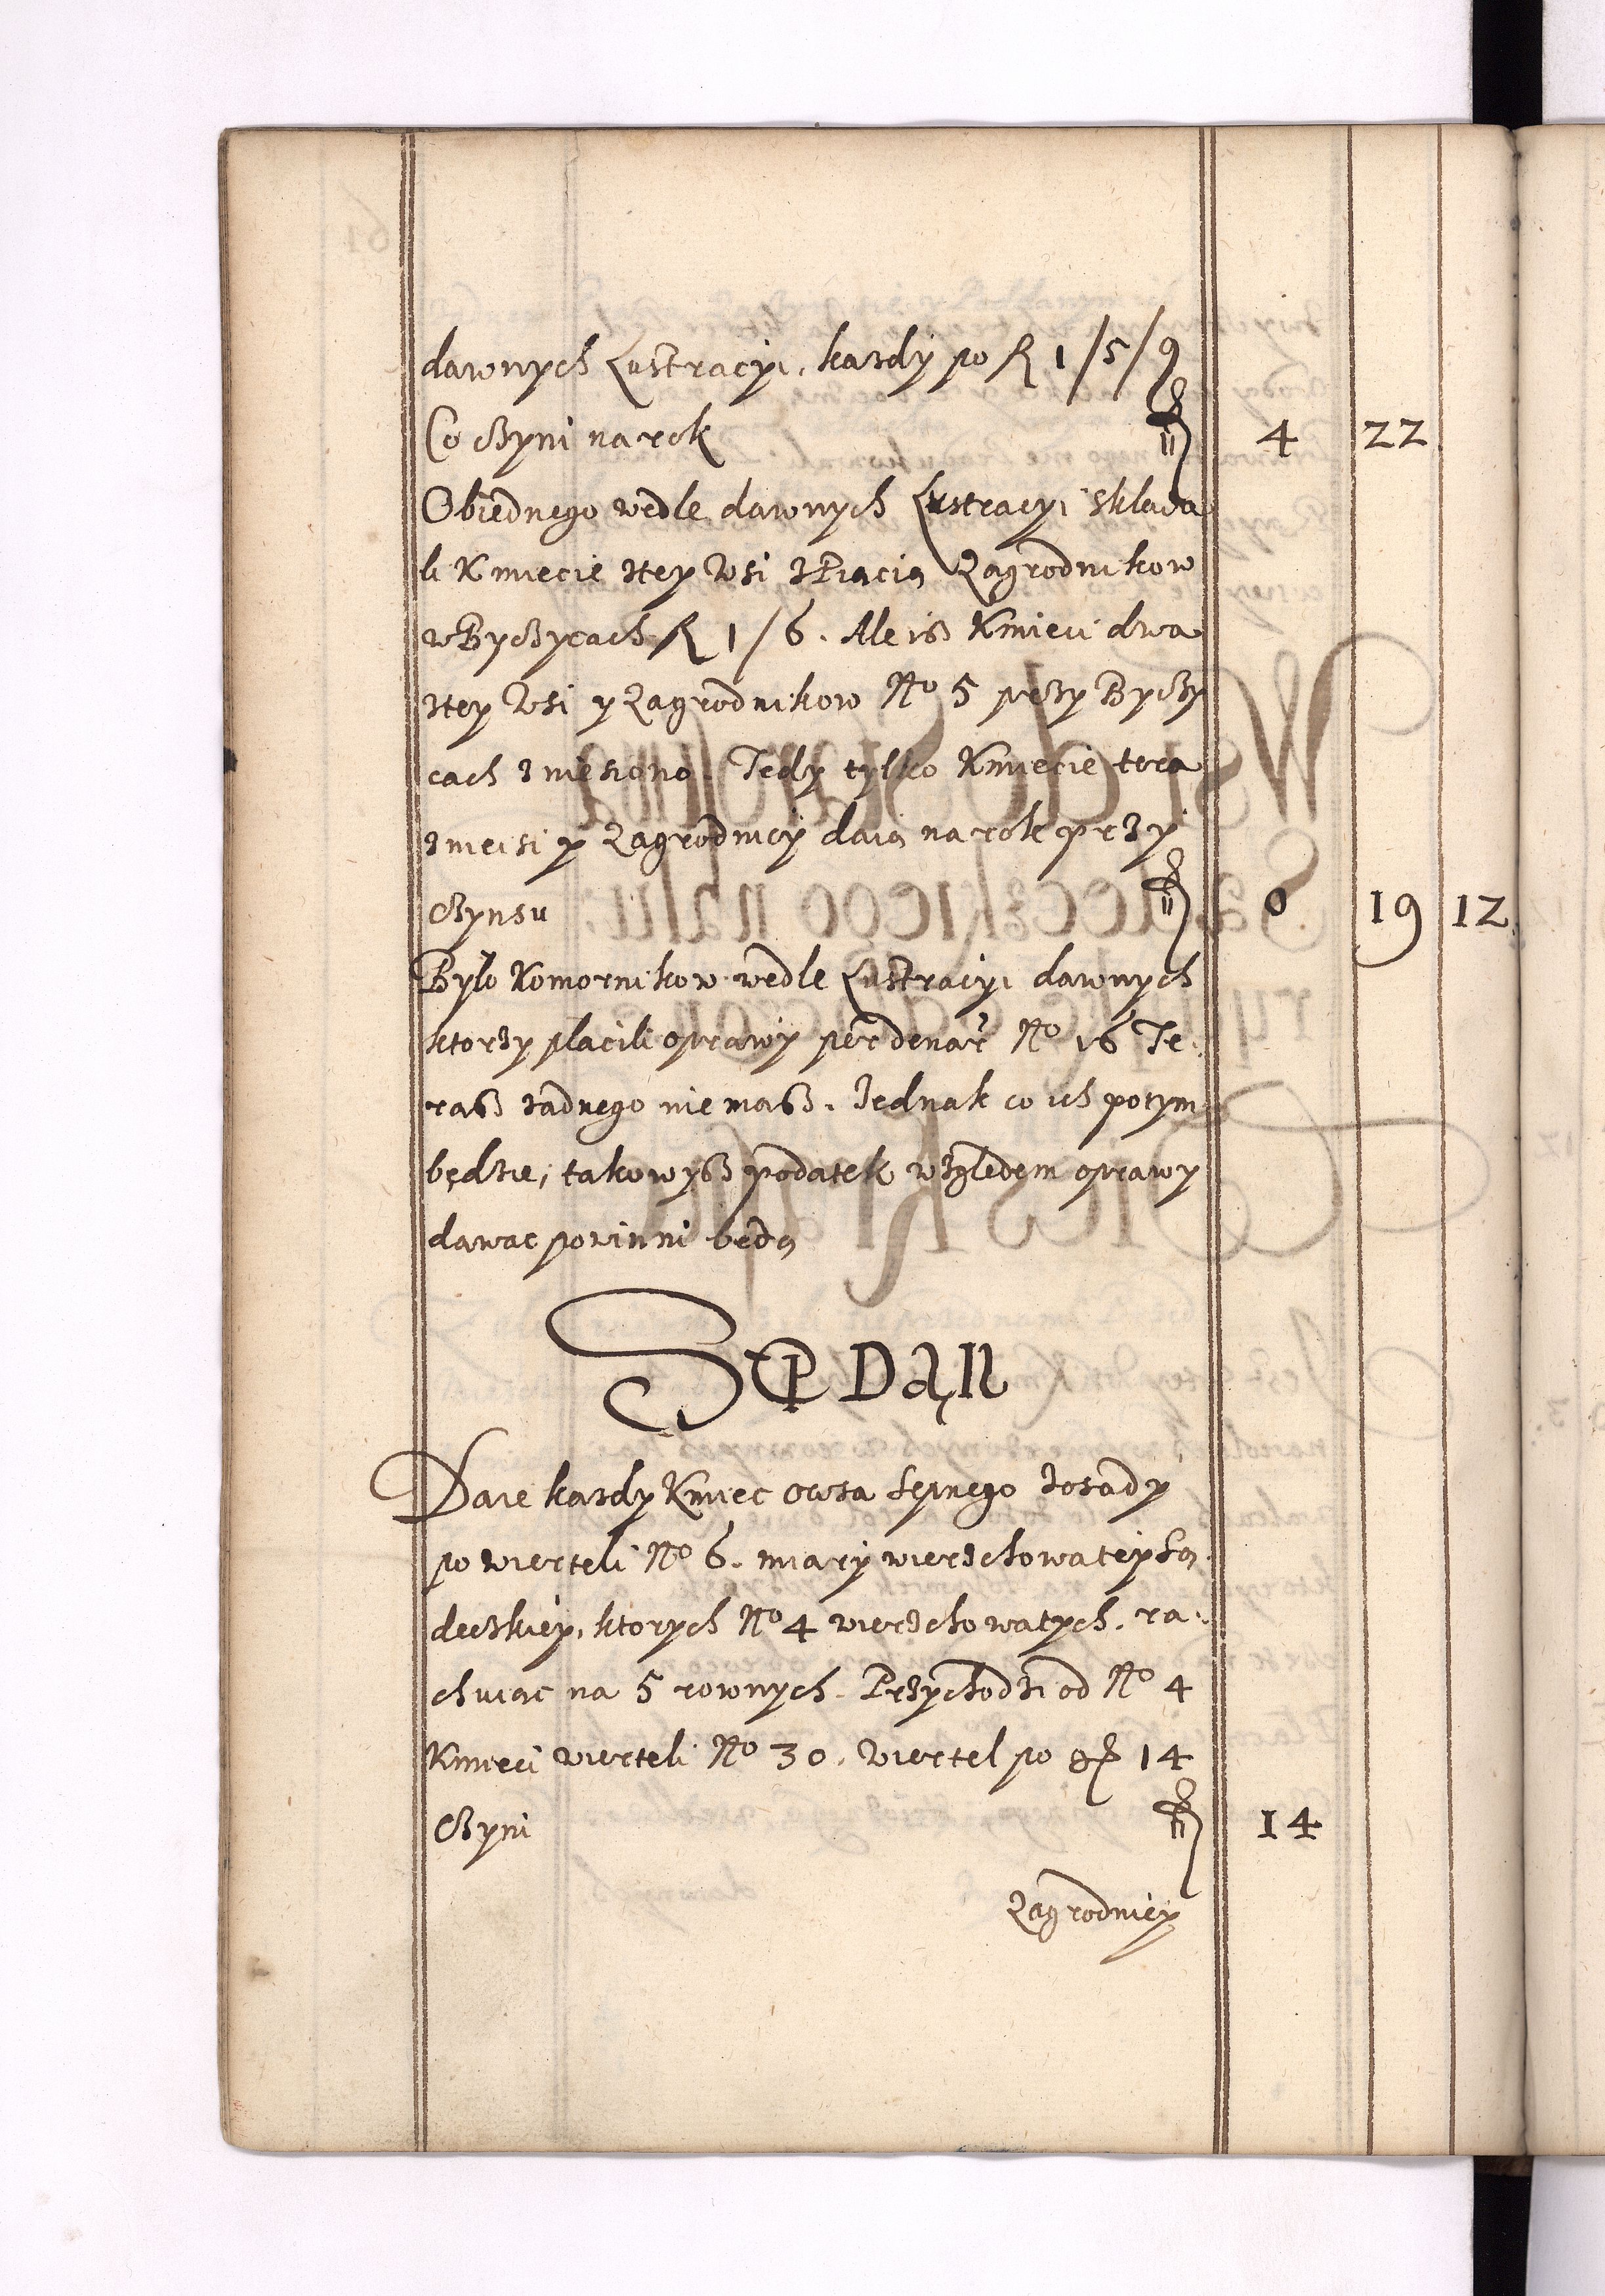 dawnych Lustracyi, kazdy po R 1/5/9
Co czyni na rok 4 22
Obiednego wedle dawnych Lustracyi sklada
li Kmiecie ztey Wsi z Piacią Zagrodnikow
w Byczycach R 1/6. Ale isz Kmieci dwa
ztey Wsi y Zagrodnikow No 5 przy Byczy
cach zniesiono. Tedy tylko Kmiecie tera
znieisi y Zagrodnicy daią na rok przy
Czynsu 0 19 12
Bylo Komornikow wedle Lustracyi dawnych
ktorzy placili oprawy per denar No 16 Te
rasz zadnego nie masz. Jednak co ich potym
będzie, takowysz podatek względem oprawy
dawac powinni będą
SEP DAŃ
Daie kazdy Kmiec owsa sepnego zosady
po wierteli No 6. miary wierzchowatey Są
deczkiey, ktorych No 4 wierzchowatych. ra
chuiac na 5 rownych. Przychodzi od No 4
Kmieci wierteli No 30. Wiertel po gr 14
Czyni 14
Zagrodnicy